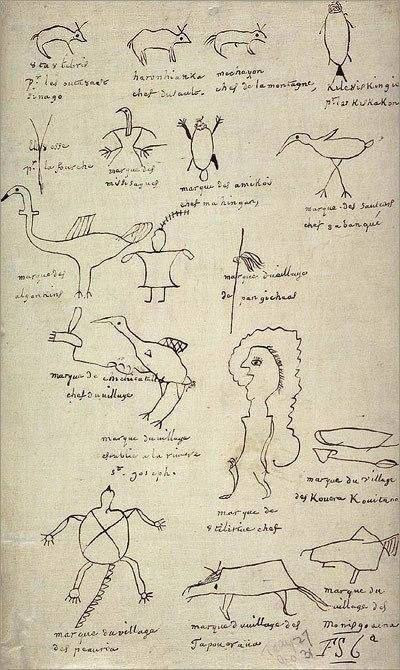 8ta8libris
pr. les outa8acs
sinago
haronhiatéka
chef du sault.
mechayon
chef de la montagne,
Kileouiskingié
pr. les Kiskakon
elisosse
pr. la fourche
marque des
missisagues
marque des amikois
chef mahingan
marque des sauteurs
chef 8abanqué
marque des
algonkins
marque du village
de pangicheas
marque de chichicatalo
chef du village
marque du village
establie a la riviere
st. joseph.
marque de
8tilirine chef
marque du village
des Kouera Kouitanon
marque du village
des peauria
marque du village des
Tapouaroüa
marque du
village des
Monisgo8ena